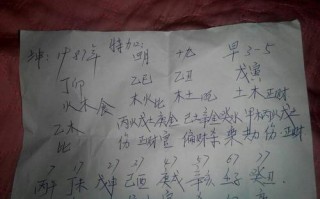 坤:1987年 特加: 四 十九 早3-5
丁卯 乙巳 乙丑 戊寅
火木食 木火比 木土 土木正财
乙木 丙火戊土庚金 己土辛金癸水 甲木丙火戊土
比 伤正财官 偏财杀枭 劫伤正财
7 17 27 37 47 57 67 77
丙午 丁未 戊申 己酉 庚戌 辛亥 壬子 癸丑